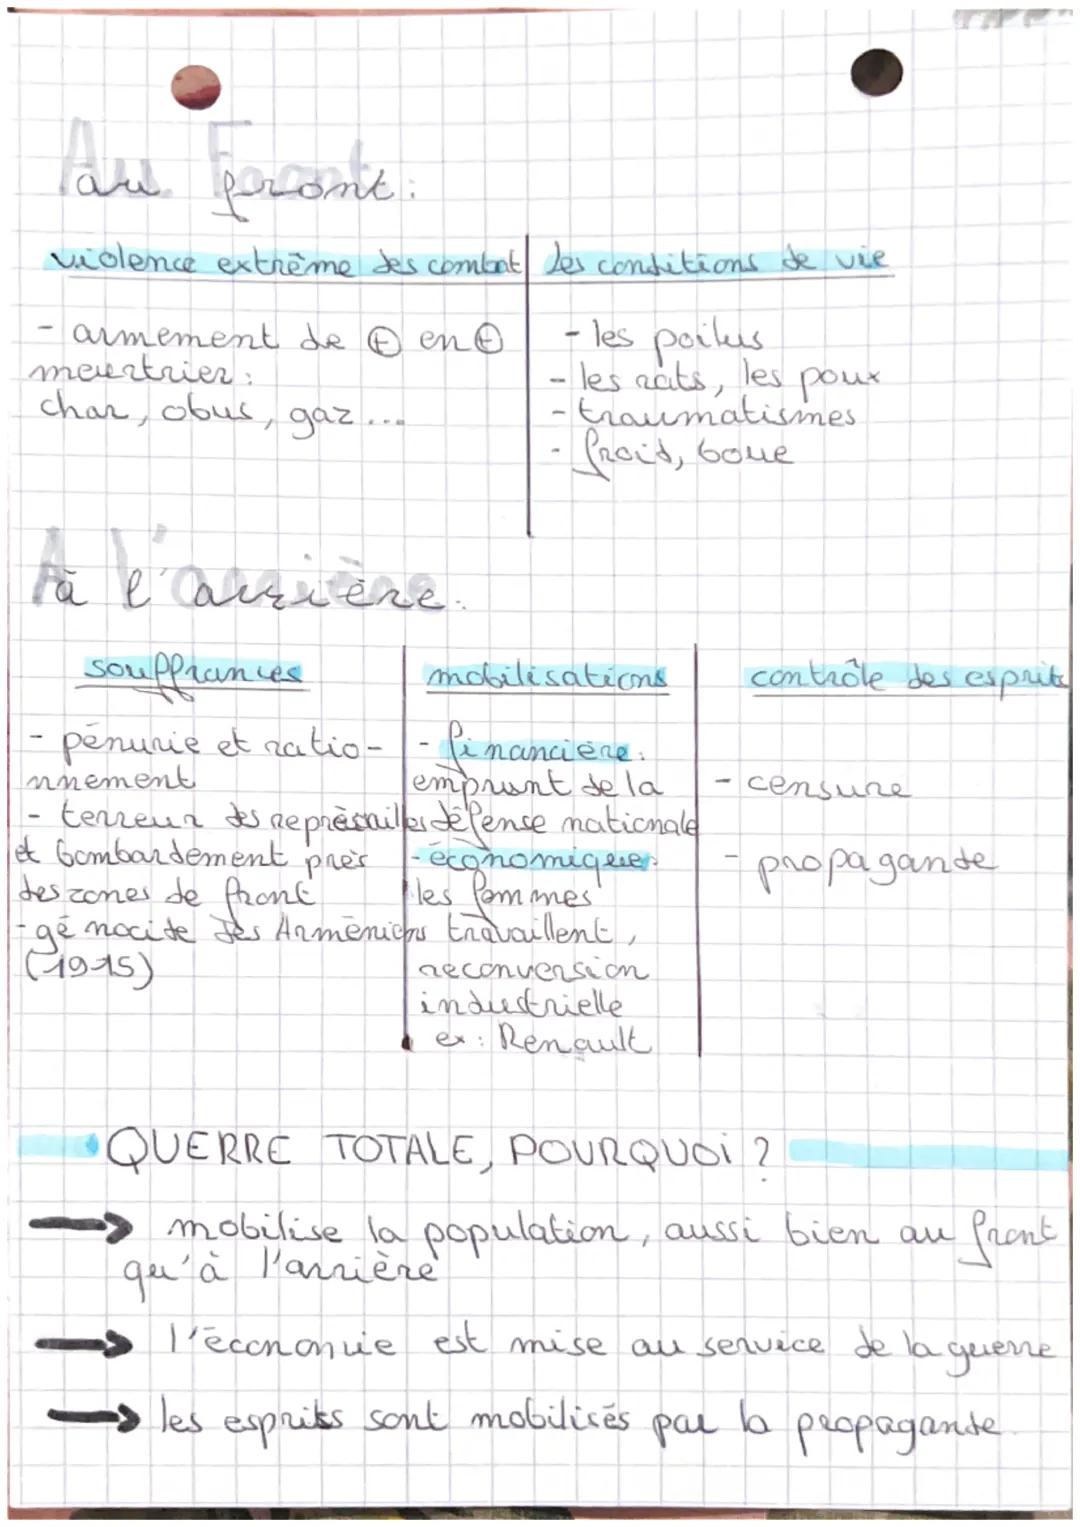 Au Front
au front:
violence extrême des combat
- armement de ⊕ en ⊕
meurtrier:
char, obus, gaz...
les conditions de vie
- les poilus
- les rats, les poux
- traumatismes
- froid, boue
A l'arrière
à l'arrière.
souffrances
- pénurie et ratio-
nnement
- terreur des représailles
et bombardement près
des zones de front
- génocide des Arméniens
(1915)
mobilisations
- financière:
emprunt de la
défense nationale
- économique:
les femmes
travaillent,
reconversion
industrielle
ex: Renault
contrôle des esprits
- censure
- propagande
QUERRE TOTALE, POURQUOI ?
→ mobilise la population, aussi bien au front
qu'à l'arrière
→ l'économie est mise au service de la guerre
→ les esprits sont mobilisés par la propagande